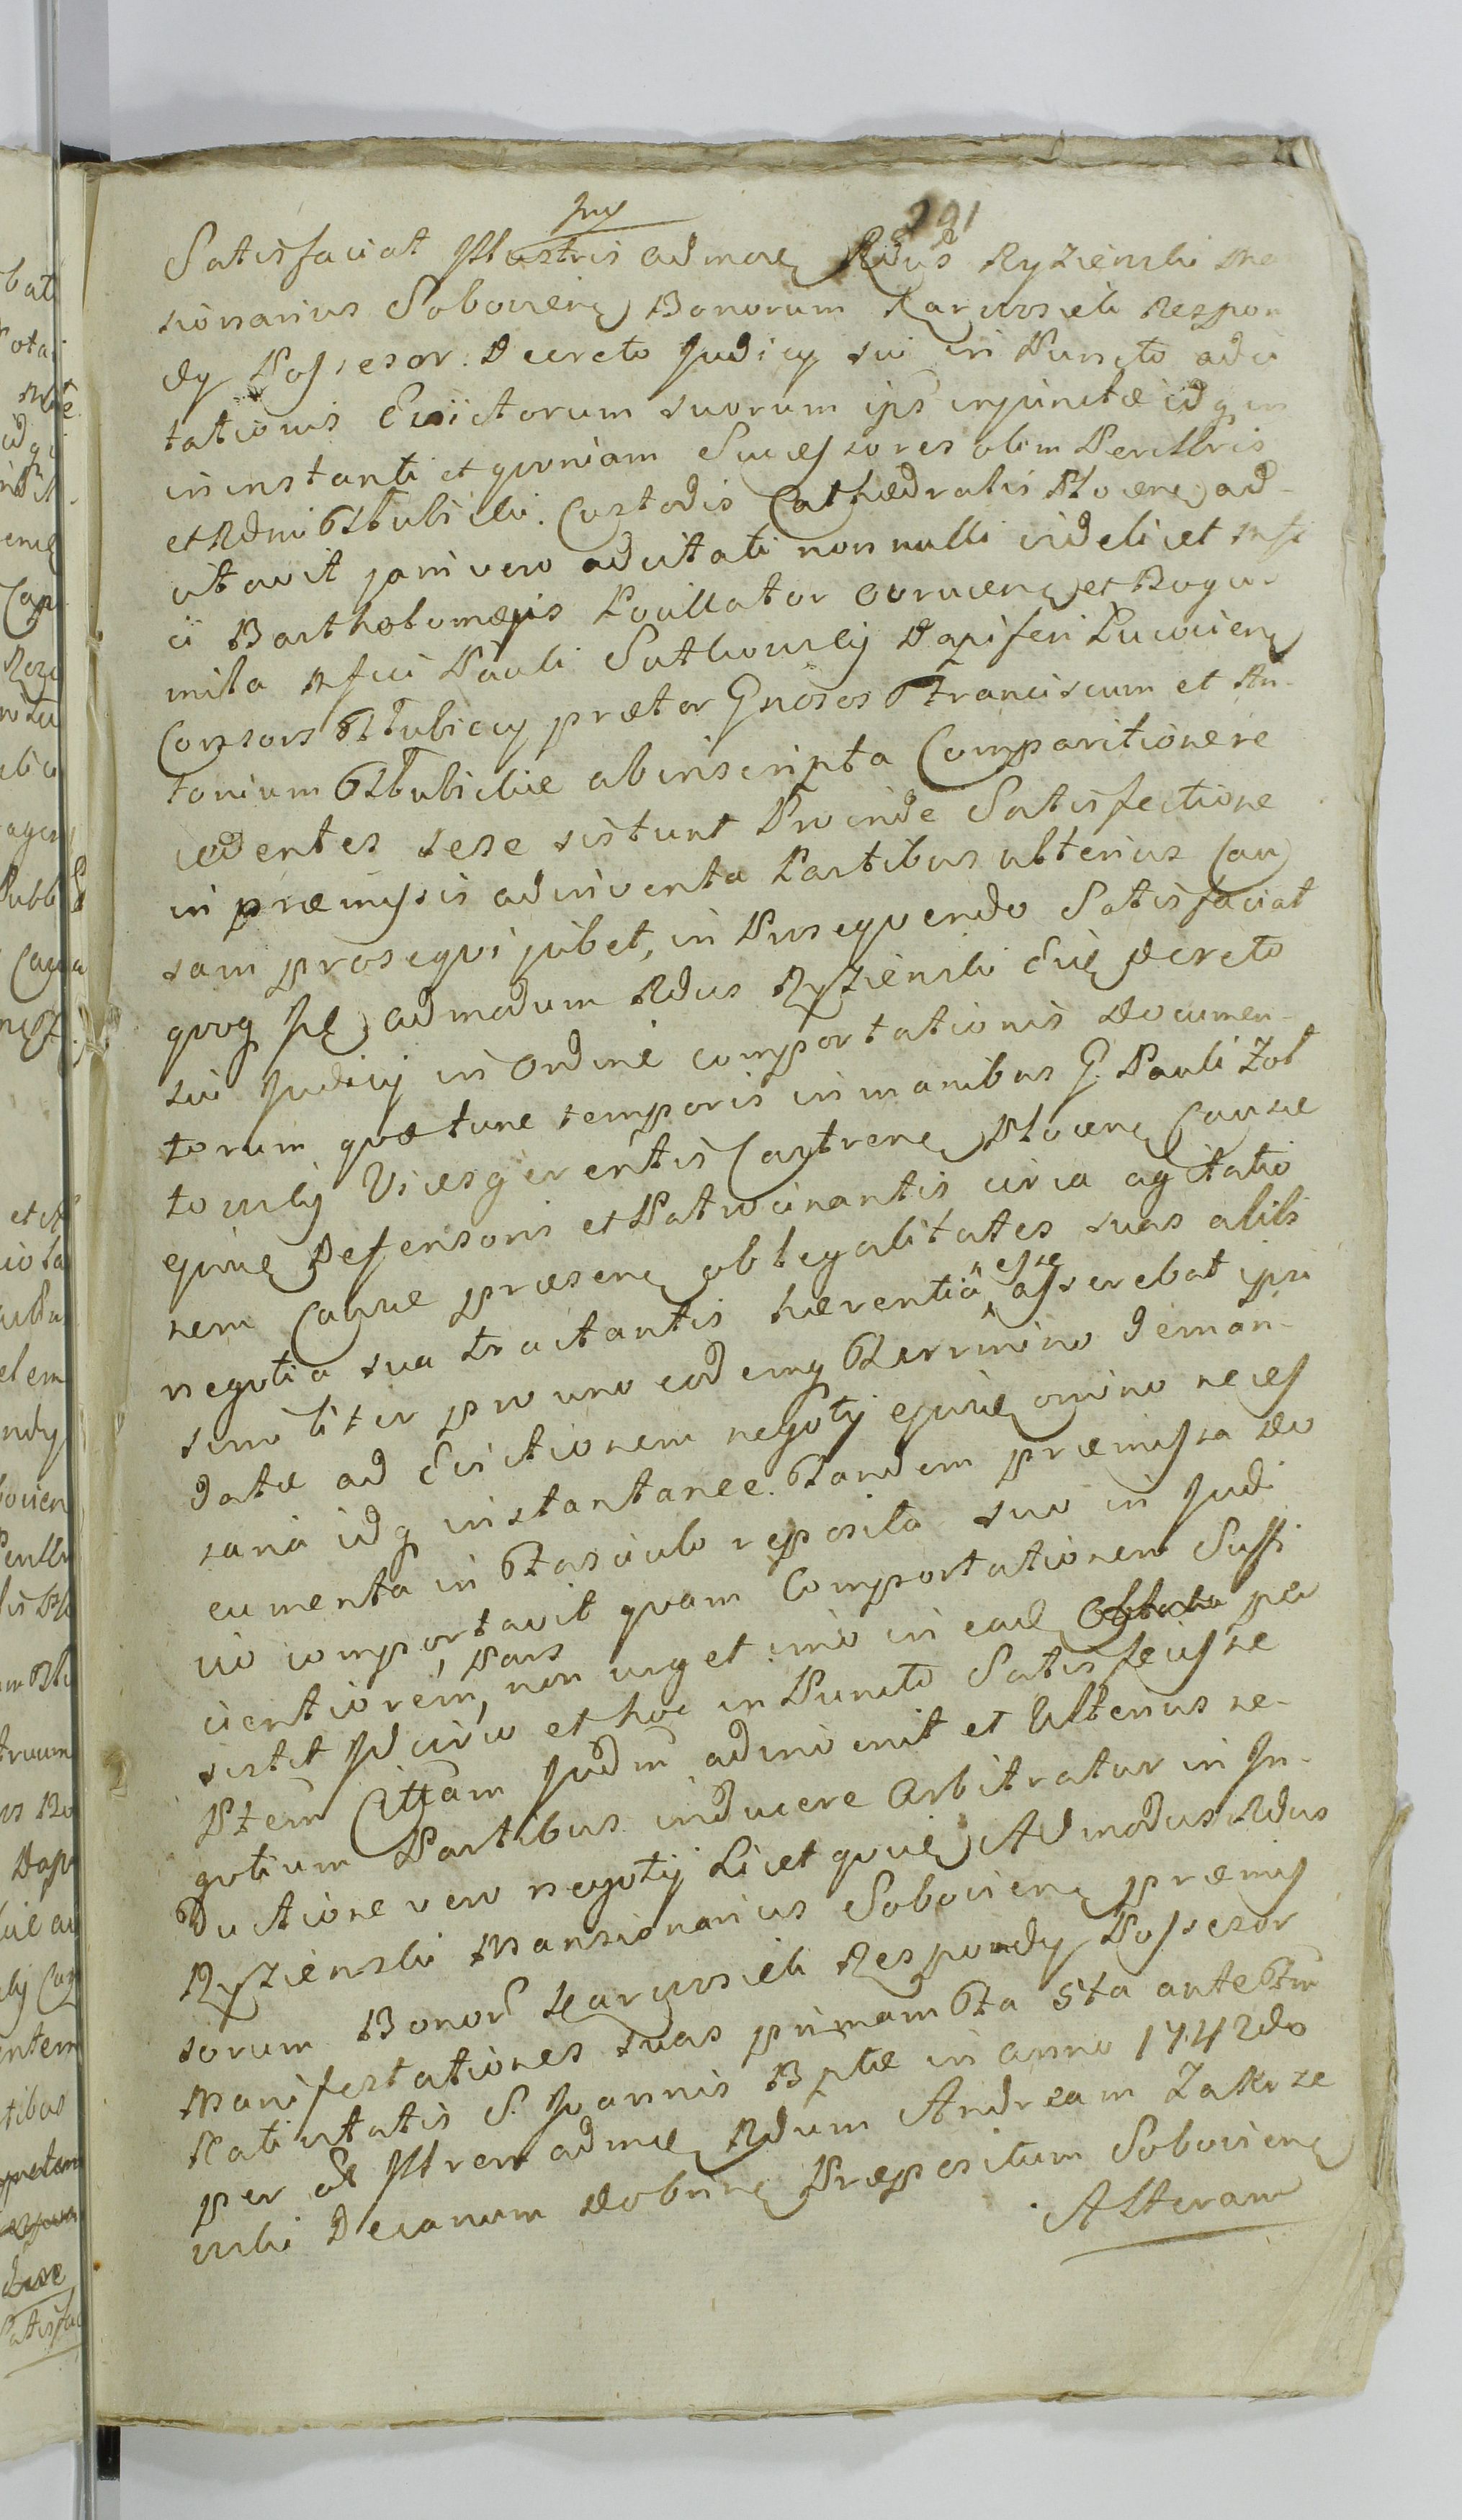 291
Satisfaciat Illustris admoe Rdus Ryzienski Ma
sionarius Sobociene Bonorum Karwosieki Respon
dy Possesor. Decreto Judicy sui in Puncto adci
tationis Evictorum suorum ips injunctæ idq in
ininstanti et qvoniam Sucessores olim Perillris
et Rdmi Stubicki Custodis Cathedralis Plocene ad-
citavit jam vero adcitati non nulli videlicet Mfi
ci Bartholomæus Pocillator Owrucene et Bogu
mila Mfici Pauli Sutkowskij Dapiferi Lucociene
Consors Stubiccy præter Gnosos Franciscum et An-
tonium Stubickie ab inscripta Comparitione re
cedentes sese sistunt Proinde Satisfectione
in præmissis adinventa Partibus ulterius Cau
sam proseqvi jubet, in Proseqvendo Satisfaciat
qvoq Ille admodum Rdus Ryzienski Evie Decreto
sui Judicij in Ordine comportationis Documen-
torum qvæ tunc temporis in manibus G. Pauli Zol
towskij Vicesgerentis Castrene Plocene Causæ
ejusve Defensoris et Patrocinantis circa agitatio
nem Causæ præsene ob legalitates suas alibi
negotia sua tractantis hærentia esse asserebat ipsi
similiter pro uno eodemq Termino deman-
datæ ad Evictionem negotij ejusve omnino neces
saria idq instantanee. Tandem præmissa do
cumenta in Fasciculo reposita suo in Judi
cio comportavit qvam Comportationem Suffi
cientiorem, Pars non urget imo in eade per
sistit Idcirco et hoc in Puncto Satisfecisse
Ptem Cittam Judm adinvenit et Ulterius ne-
gotium Partibus inducere Arbitratur in In-
ductione vero negotij Licet qvide Admodus Rdus
Ryzienski Mansionarius Sobociene præmis
sorum Bonor Karwosieki Respondy Possesor
Manifestationes suas primam Fa 5ta ante Ftm
Nativitatis S. Joannis Bptæ in anno 1742do
per Illrem admde Rdum Andream Zakrze
wski Decanum Dobrine Præpositum Sobociene
Alteram